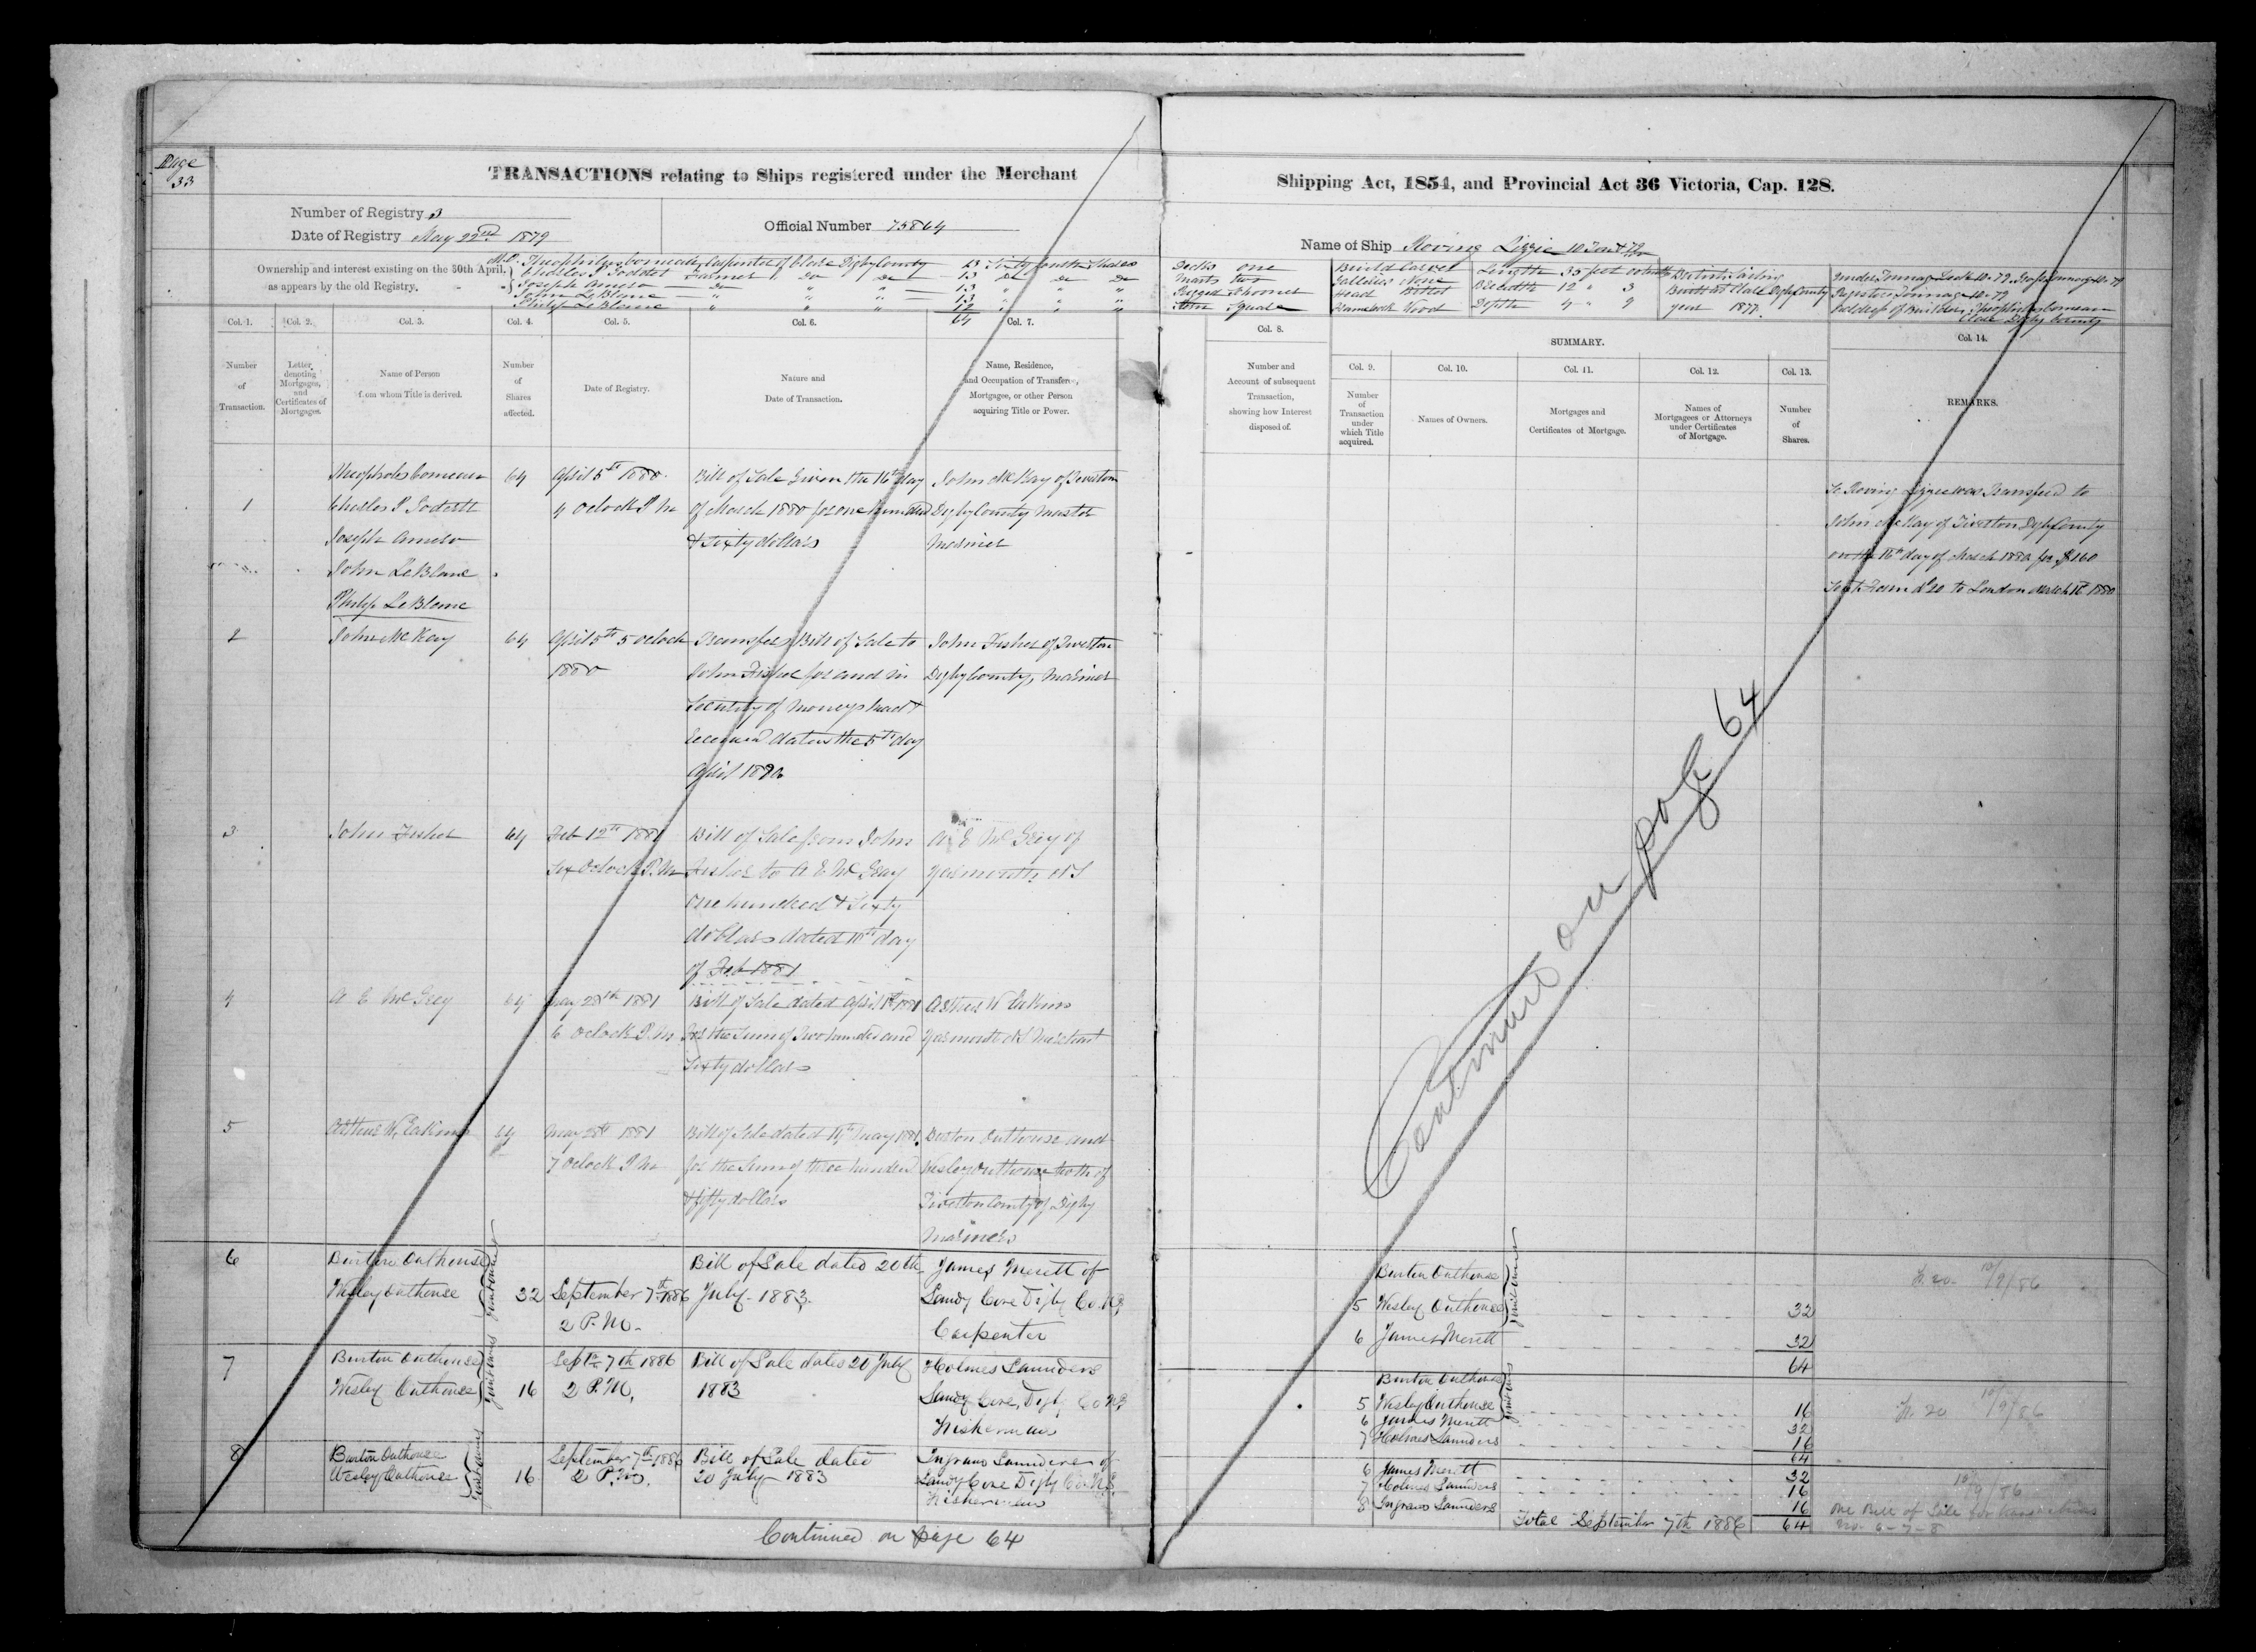 Page
33
TRANSACTIONS relating to Ships registered under the Merchant
Number of Registry 3
Date of Registry May 22nd 1879
Official Number 75864
Ownership and interest existing on the 30th April,
as appears by the old Registry.
Theophilus Comeau Carpenter of Clare Digby County 13 Sixty fourth Shares
Charles P Goddet Farmer Do Do 13 Do Do Do
Joseph Amero Do " " 13 " " "
John LeBlanc " " " 13 " " "
Philip LeBlanc " " " 12 " " "
64
Col. 1. Col. 2. Col. 3. Col. 4. Col. 5. Col. 6. Col. 7.
Number
of
Transaction.
Letter
denoting
Mortgages,
and
Certificates of
Mortgages.
Name of Person
from whom Title is derived.
Number
of
Shares
affected.
Date of Registry.
Nature and
Date of Transaction.
Name, Residence,
and Occupation of Transferee,
Mortgagee, or other Person
acquiring Title or Power.
1
Theophols Comeau
Charles P Godett
Joseph Amero
John LeBlanc
Philip LeBlanc
64
April 5th 1880
4 Oclock P M
Bill of Sale Given the 16th day
of March 1880 for one hundred
& Sixty dollars
John McKay of Tiverton
Digby County Master
Mariner
2
John McKay
64
April 5th 5 oclock
1880
Transfer Bill of Sale to
John Fisher for and in
Security of moneys had &
received dated the 5th day
April 1880
John Fisher of Tiverton
Digby County, Mariner
3
John Fisher
64
Feb 12th 1881
Six Oclock P. M
Bill of Sale from John
Fisher to A E McGray
One hundred & Sixty
dollars dated 10th day
of Feb 1881
A E McGray of
Yarmouth NS
4
A E McGrey
64
May 28th 1881
6 Oclock P. M
Bill of Sale dated April 1881
For the Sum of Two hundred and
Sixty dollars
Arthur W Eakins
Yarmouth NS Merchant
5
Arthur W. Eakins
64
May 28th 1881
7 Oclock P M
Bill of Sale dated May 1881
for the Sum of three hundred
& fifty dollars
Burton Outhouse and
Wesley Outhouse both of
Tiverton County of Digby
Mariners
6
Burton Outhouse
Wesley Outhouse
Joint Owners
32
September 7th 1886
2 P.M.
Bill of Sale dated 20th
July 1883.
James Merett of
Sandy Cove Digby Co. N.S.
Carpenter
7
Burton Outhouse
Wesley Outhouse
Joint Owners
16
Sept 7th 1886
2 P.M.
Bill of Sale dated 20 July
1883
Holmes Saunders
Sandy Cove, Digby Co N.S.
Fisherman
8
Burton Outhouse
Wesley Outhouse
Joint Owners
16
September 7th 1886
2 P.M.
Bill of Sale dated
20 July 1883
Ingram Saunders of
Sandy Cove Digby Co. N.S.
Fisherman
Continued on page 64
Shipping Act, 1854, and Provincial Act 36 Victoria, Cap. 128.
Name of Ship Roving Lizzie 10 Tons 79
Decks one
Masts two
Rigged Schooner
Stern Square
Build Carvel
Galleries None
Head Billet
Framework Wood
Length 35 feet
Breadth 12 " 3
Depth 4 " 9
British Sailing
Built at Clare Digby County
year 1877.
Under Tonnage Deck 10.79
Register Tonnage 10.79
Address of Builder, Theophilus Comeau
Clare Digby County
Col. 8.
Number and
Account of subsequent
Transaction,
showing how Interest
disposed of.
SUMMARY.
Col. 9. Col. 10. Col. 11. Col. 12. Col. 13.
Number
of
Transaction
under
which Title
acquired.
Names of Owners.
Mortgages and
Certificates of Mortgage.
Names of
Mortgagees or Attorneys
under Certificates
of Mortgage.
Number
of
Shares.
Col. 14.
REMARKS.
Roving Lizzie was Transferd to
John McKay of Tiverton Digby County
on the 16th day of March 1880 for $160
Sent Form No 20 to London March 16th 1880
Continued on page 64
5
Burton Outhouse
Wesley Outhouse
Joint Owners
32
6 James Merett 32
64
10/9/86
Burton Outhouse
5 Wesley Outhouse 16
6 James Merett 32
7 Holmes Saunders 16
64
10/9/86
6 James Merett 32
7 Holmes Saunders 16
8 Ingram Saunders 16
Total September 7th 1886 64
10/9/86
One Bill of Sale for transactions
No. 6-7-8